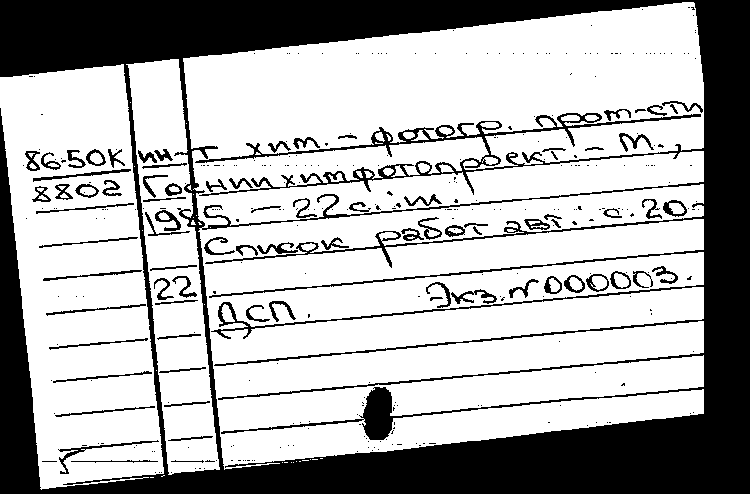 86-50К ин-т хим. - фотогр. пром-сти
8802 Госниихимфотопроект. - М.,
1985. - 22 с. : ил.
Список работ авт.: с. 20-
22.
ДСП. Экз. № 000003.